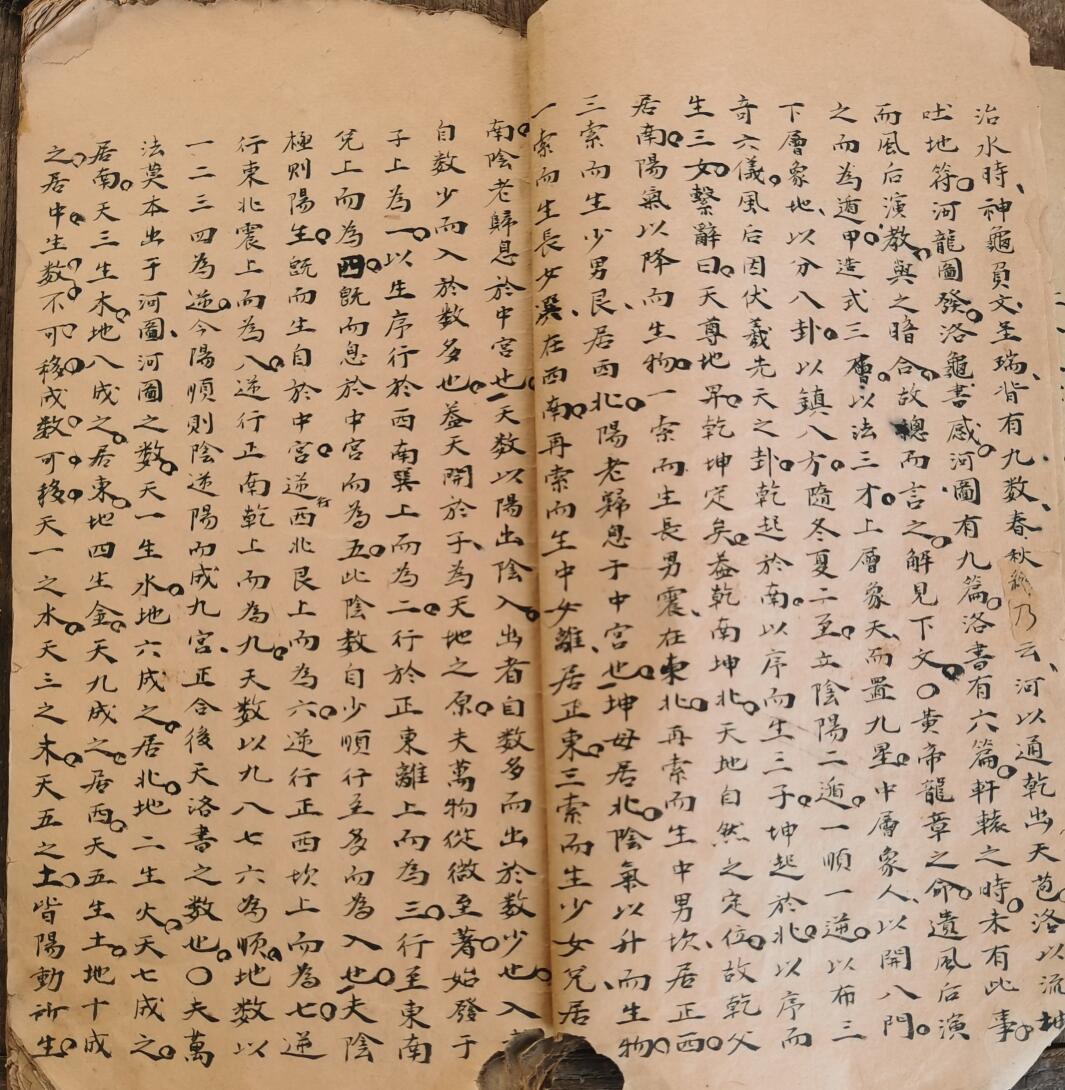 治水時、神龜負文呈瑞、背有九數、春秋緯乃云、河以通乾出天苞。洛以流坤
吐地符。河龍圖發。洛龜書感。河圖有九篇。洛書有六篇。軒轅之時。未有此事。
而風后演教。與之暗合。故總而言之。解見下文。○黃帝龍章之命。遺風后演
之而為遁甲。造式三層。以法三才。上層象天、而置九星。中層象人、以開八門。
下層象地、以分八卦。以鎮八方。隨冬夏二至。立陰陽二遁。一順一逆。以布三
奇六儀。風后因伏羲先天之卦。乾起於南。以序而生三子。坤起於北。以序而
生三女。繫辭曰。天尊地卑。乾坤定矣。蓋乾南坤北。天地自然之定位。故乾父
居南。陽氣以降而生物。一索而生長男震、在東北。再索而生中男坎、居正西。
三索而生少男艮、居西北。陽老歸息于中宮也。坤母居北。陰氣以升而生物。
一索而生長女巽、在西南。再索而生中女離、居正東。三索而生少女兌居
南。陰老歸息於中宮也。天數以陽出陰入。出者自數多而出於數少也。入
自數少而入於數多也。蓋天開於子、為天地之原。夫萬物從微至著。始發于
子上為一。以生序行於西南巽上而為二。行於正東離上而為三。行至東南
兌上而為四。旣而息於中宮而為五。此陰数自少順行至多而為入也。夫陰
極則陽生。旣而生自於中宮。逆行西北艮上而為六。逆行正西坎上而為七。逆
行東北震上而為八。逆行正南乾上而為九。天數以九八七六為順。地數以
一二三四為逆。今陽順則陰逆陽而成九宮、正合後天洛書之数也。○夫萬
法莫本出于河圖、河圖之数。天一生水。地六成之。居北。地二生火。天七成之。
居南。天三生木。地八成之。居東。地四生金。天九成之。居西。天五生土。地十成
之。居中。生数不可移。成数可移。天一之水。天三之木。天五之土。皆陽動所生。